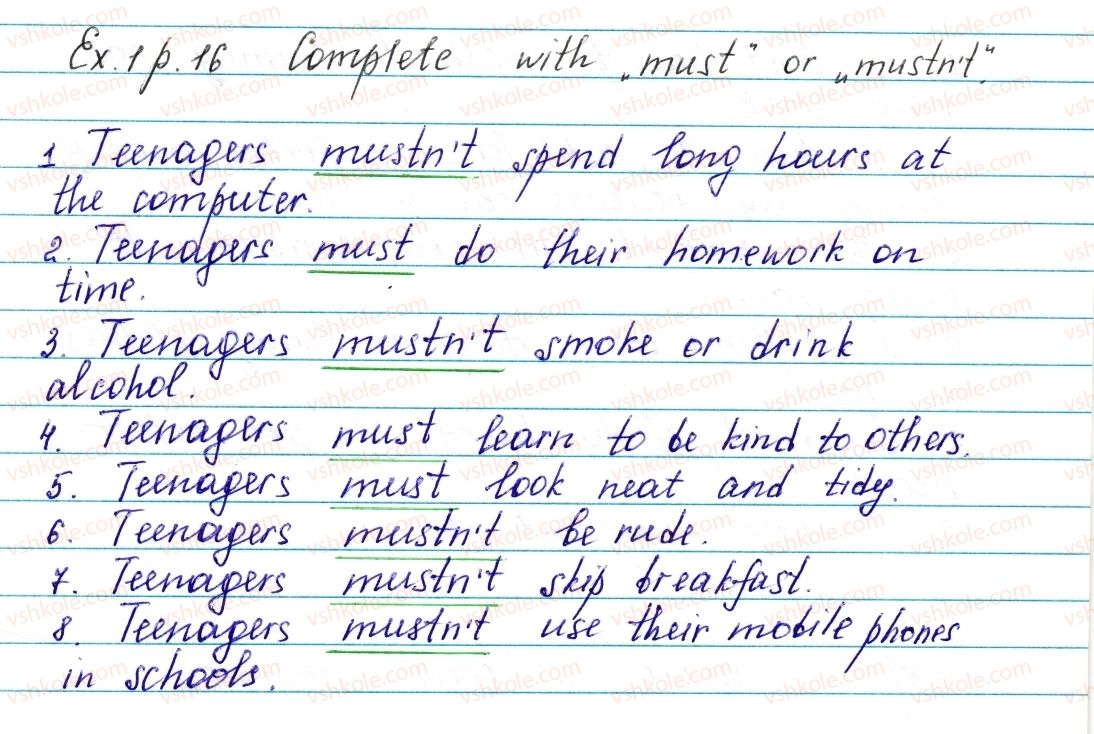 Ex. 1 p. 16 Complete with „must" or „mustn't".
1 Teenagers mustn't spend long hours at
the computer.
2. Teenagers must do their homework on
time.
3. Teenagers mustn't smoke or drink
alcohol.
4. Teenagers must learn to be kind to others.
5. Teenagers must look neat and tidy.
6. Teenagers mustn't be rude.
7. Teenagers mustn't skip breakfast.
8. Teenagers mustn't use their mobile phones
in schools.
vshkole.com